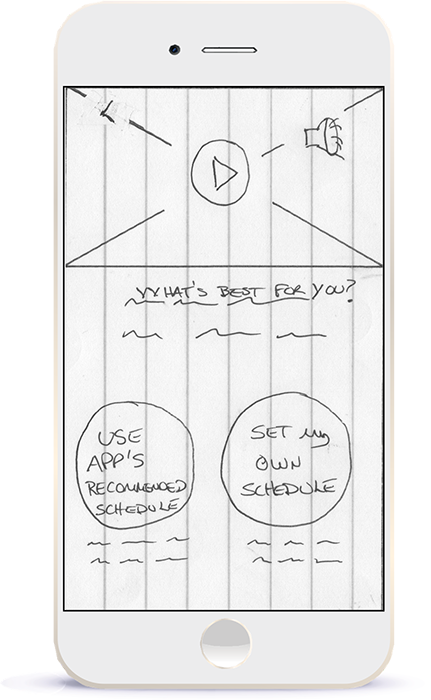 WHAT'S BEST FOR YOU?
USE
APP'S
RECOMMENDED
SCHEDULE
SET my
OWN
SCHEDULE